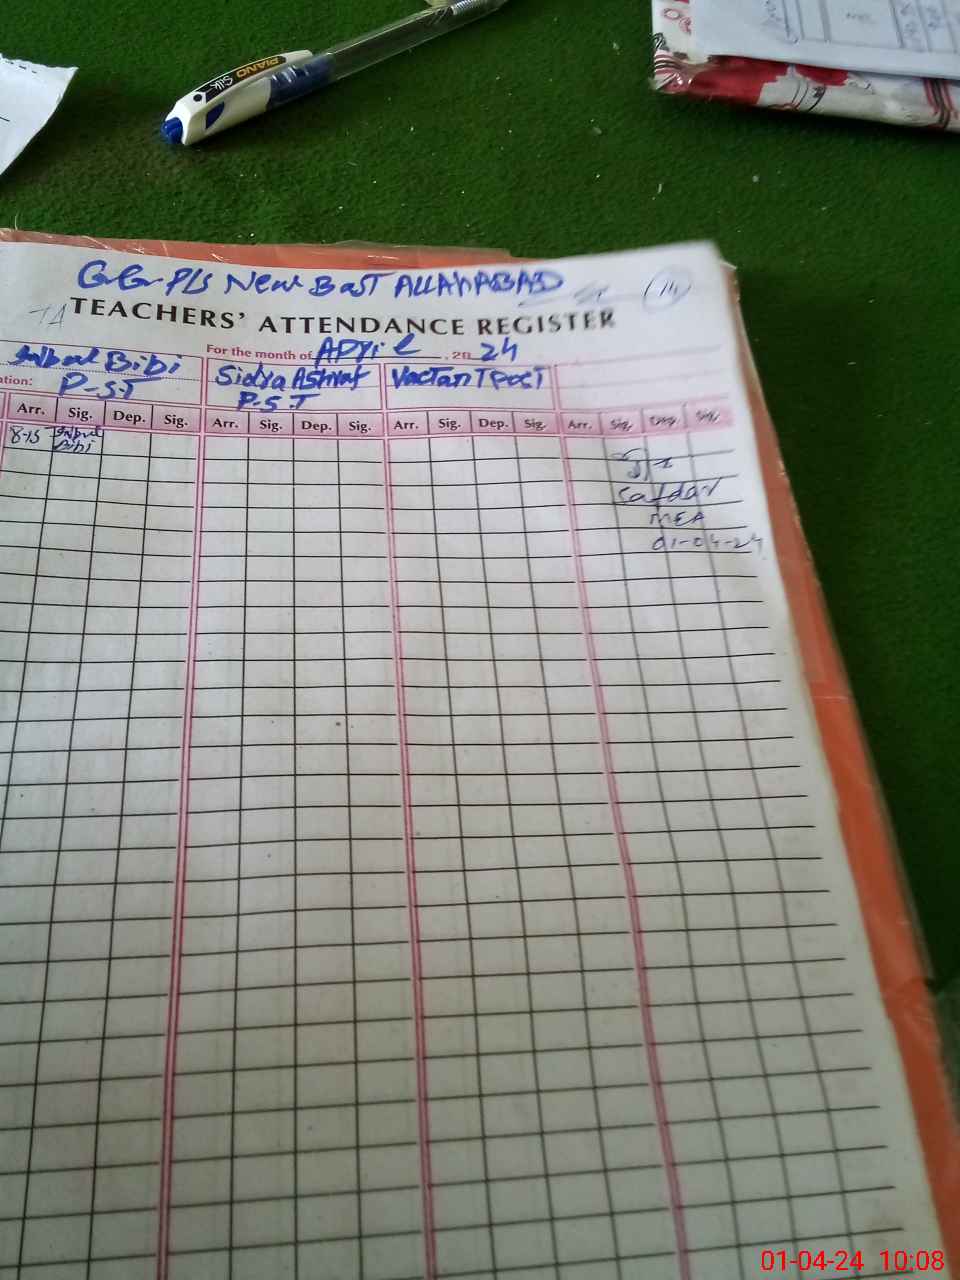 PIANO
Silk
G.G.P/S New Bast ALLAHABAD
14
TEACHERS' ATTENDANCE REGISTER
For the month of APril, 20 24
Bibi
ation: P-S-T
Sidra Ashraf
P.S.T
VacTanT PosT
Arr. Sig. Dep. Sig. Arr. Sig. Dep. Sig. Arr. Sig. Dep. Sig. Arr. Sig. Dep. Sig.
8-15
Bibi
Safdar
MEA
01-04-24
01-04-24 10:08